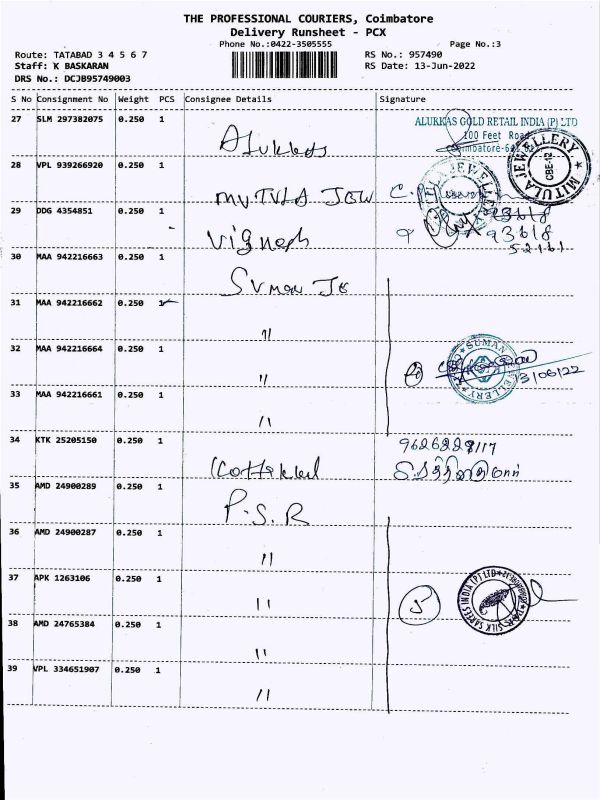 THE PROFESSIONAL COURIERS, Coimbatore
Delivery Runsheet - PCX
Phone No.:0422-3505555 Page No.:3
Route: TATABAD 3 4 5 6 7 RS No.: 957490
Staff: K BASKARAN RS Date: 13-Jun-2022
DRS No.: DCJB95749003
S No Consignment No Weight PCS Consignee Details Signature
27 SLM 297382075 0.250 1 Alukkas
ALUKKAS GOLD RETAIL INDIA (P) LTD
100 Feet Road
MITULA JEWELLERY
CBE-12
28 VPL 939266920 0.250 1
29 DDG 4354851 0.250 1 Vignesh
93618
52161
30 MAA 942216663 0.250 1 Suman Je
31 MAA 942216662 0.250 1 "
32 MAA 942216664 0.250 1 "
SUMAN JEWELLERY
13/06/22
33 MAA 942216661 0.250 1 "
34 KTK 25205150 0.250 1
35 AMD 24900289 0.250 1 P.S.R
36 AMD 24900287 0.250 1 "
37 APK 1263106 0.250 1 "
5
SILK SAREES INDIA (P) LTD
38 AMD 24765384 0.250 1 "
39 VPL 334651907 0.250 1 "